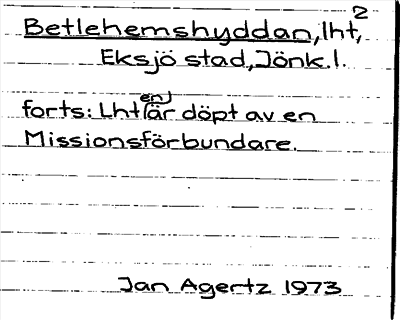 Betlehemshyddan, lht, 2
Eksjö stad, Jönk. l.
forts: Lht en är döpt av en
Missionsförbundare.
Jan Agertz 1973